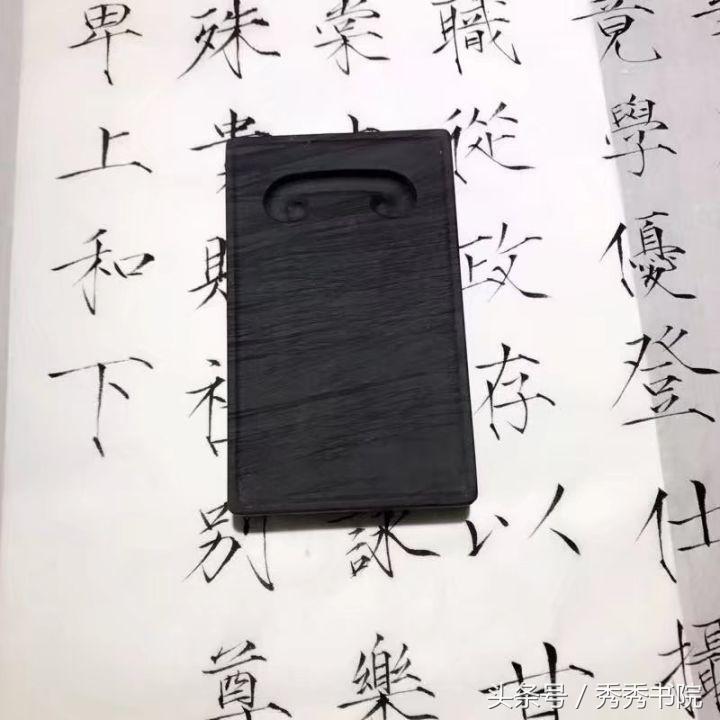 竟學優登仕攝
職從政存以甘
棠詠樂
殊別尊
卑上和下
头条号 / 秀秀书院